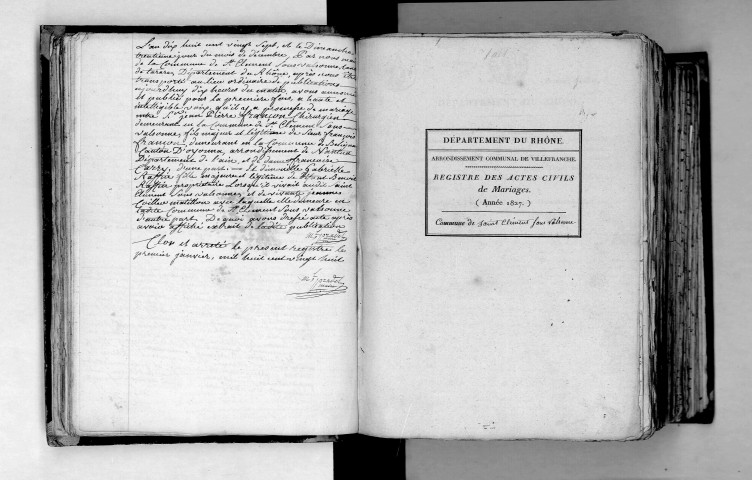 L'an dix huit cent vingt sept, et le Dimanche
trentieme jour du mois de décembre, Par nous maire
de la Commune de St Clement sous valsonne,
de tarare, Département du Rhône, après nous être
transporté au lieu ordinaire de publications
aujourd'huy dix heures du matin, avons annoncé
et publié pour la première fois, a haute et
intelligible voix, qu'il y a promesse de mariage
entre Sr jean Pierre françon Chirurgien
demeurant en la Commune de St Clement Sous
valsonne, fils majeur et légitime de Sieur françois
françon, demeurant en la Commune de
Canton D'oyonna, arrondissement de Nantua
Département de l'ain, et de dame francoise
d'une part: — Et demoiselle Gabrielle
Raffin fille majeure et légitime de Benoit
Raffin propriétaire Lorsqu'il vivait audit Saint
Clement Sous valsonne, et de vivante jeanne
matillon avec laquelle elle demeure en
ladite Commune de St Clement Sous valsonne
d'autre part, De quoi avons dressé acte après
avoir affiché extrait de ladite publication
Clos et arrêté le présent registre le
premier janvier, mil huit cent vingt huit
DÉPARTEMENT DU RHÔNE.
ARRONDISSEMENT COMMUNAL DE VILLEFRANCHE.
REGISTRE DES ACTES CIVILS
de Mariages.
( Année 1827. )
Commune de Saint Clement sous valsonne